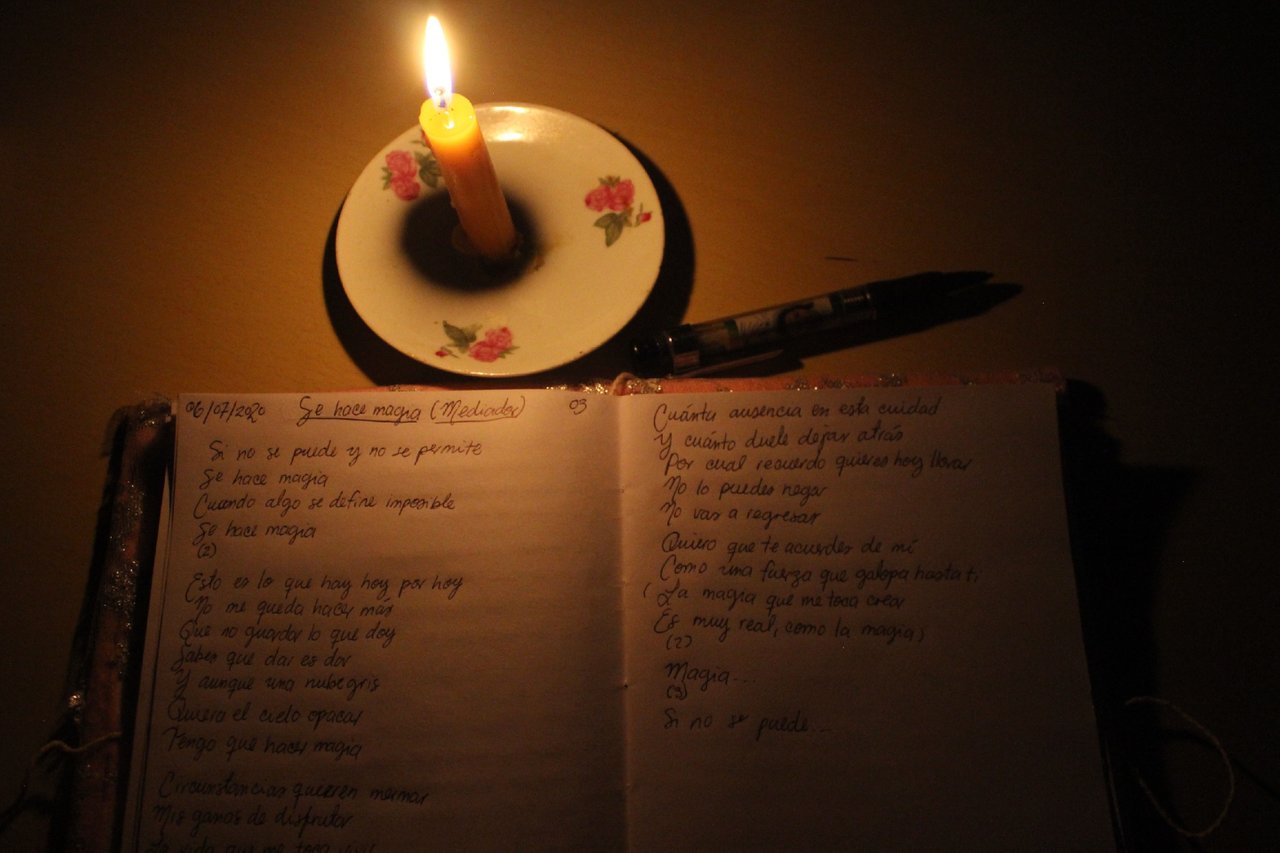 06/07/2020 Se hace magia (Mediador) 03
Si no se puede y no se permite
Se hace magia
Cuando algo se define imposible
Se hace magia
(2)
Esto es lo que hay hoy por hoy
No me queda hacer más
Que no guardar lo que doy
Saber que dar es dar
Y aunque una nube gris
Quiera el cielo opacar
Tengo que hacer magia
Circunstancias quieren mermar
Mis ganas de disfrutar
La vida que me toca
Cuánta ausencia en esta cuidad
Y cuánto duele dejar atrás
Por cual recuerdo quieres hoy llorar
No lo puedes negar
No vas a regresar
Quiero que te acuerdes de mí
Como una fuerza que galopa hasta ti
(La magia que me toca crear
Es muy real, como la magia)
(2)
Magia...
(3)
Si no se puede...